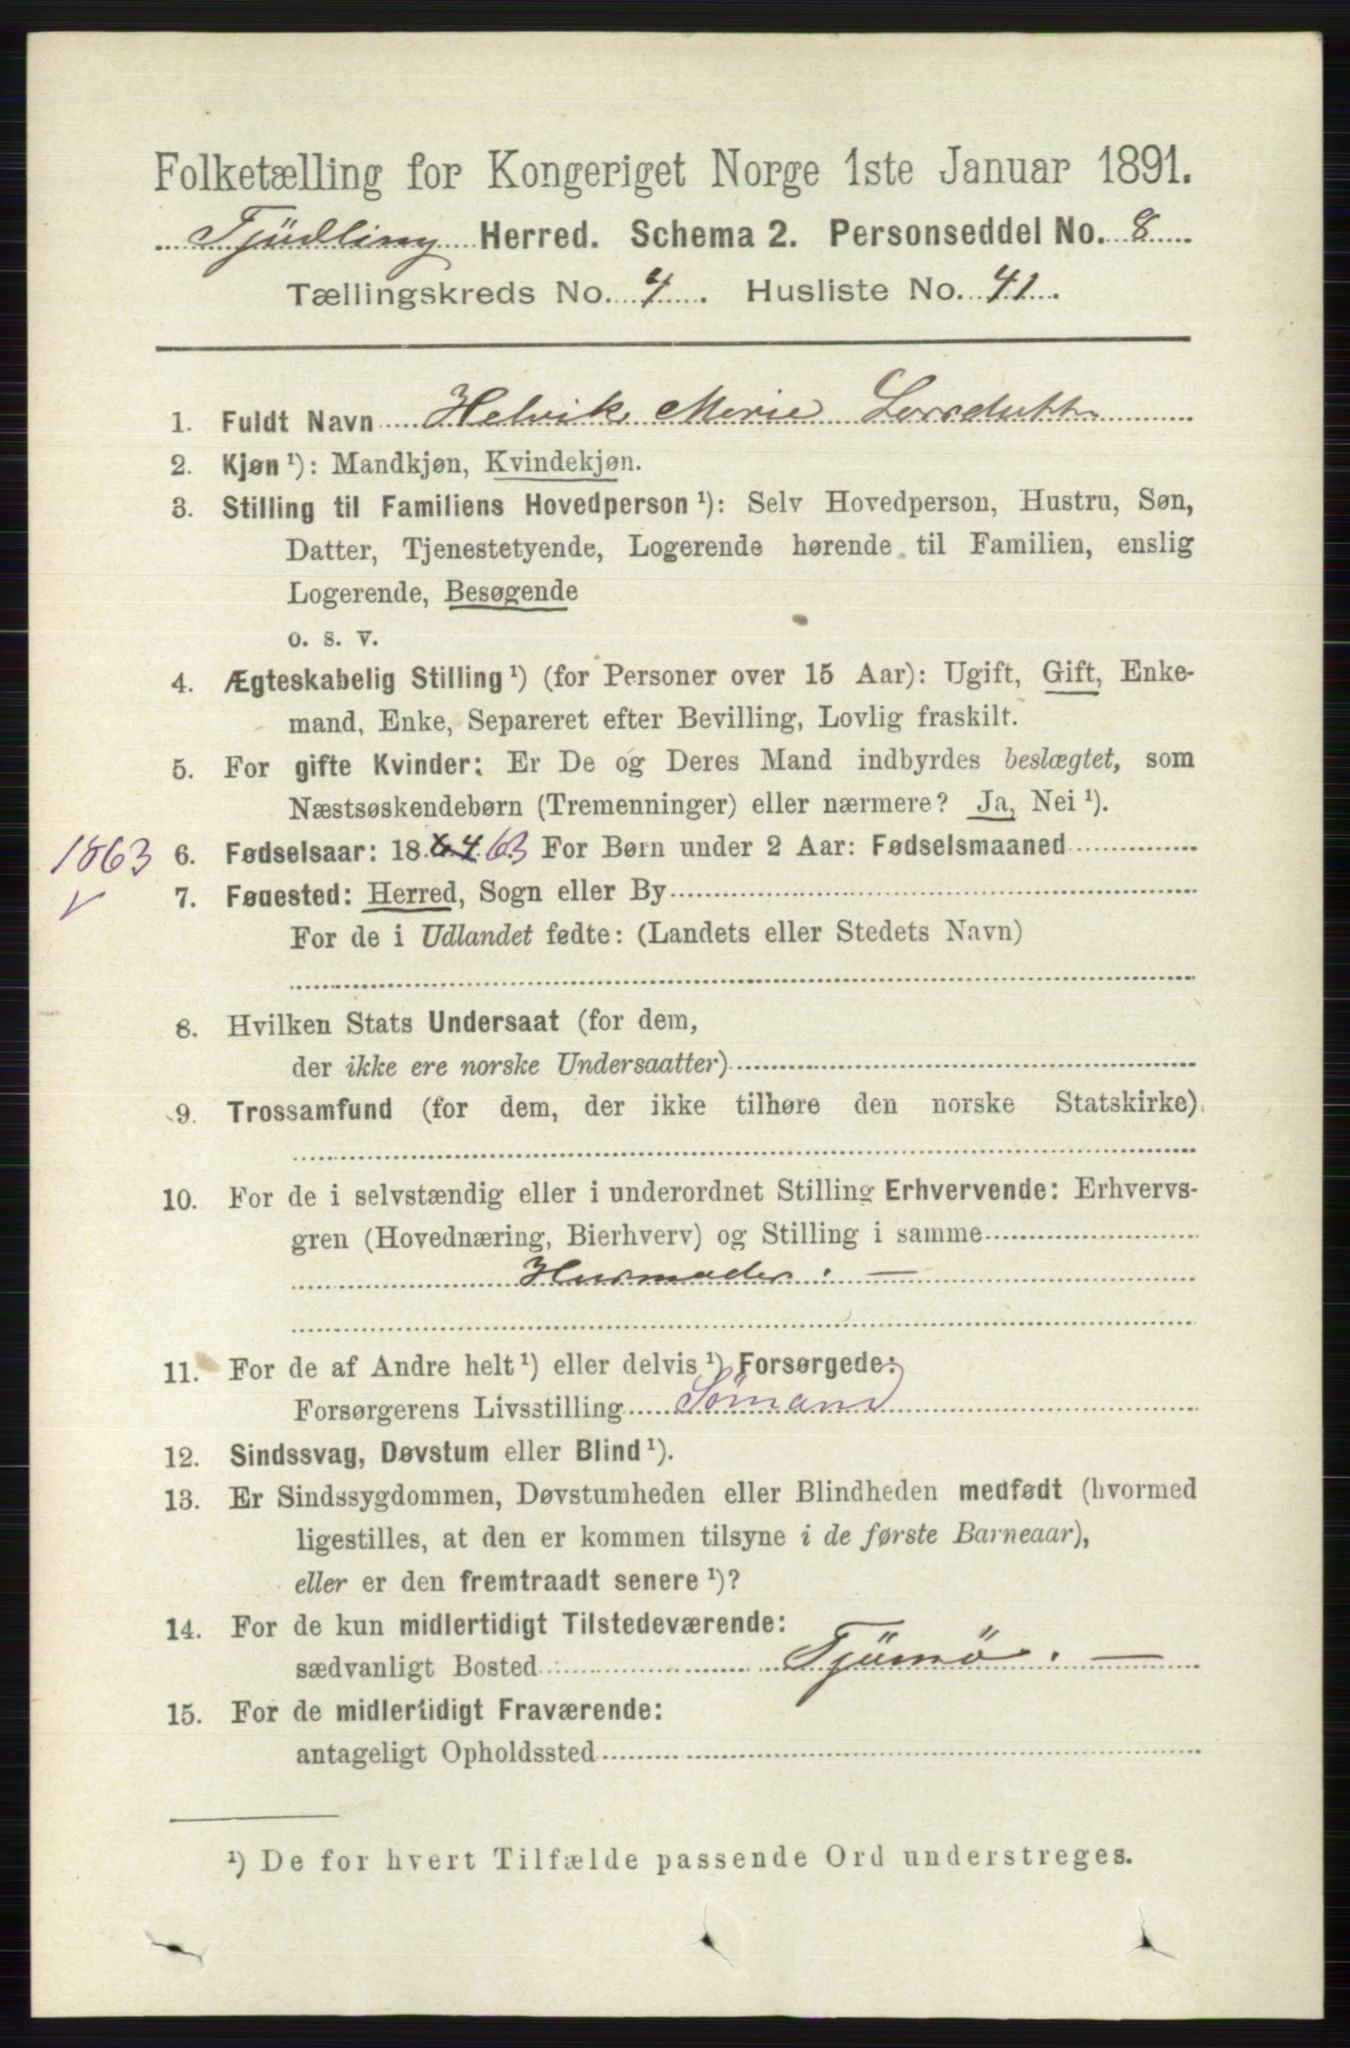 Folketælling for Kongeriget Norge 1ste Januar 1891.
Tjüdling Herred. Schema 2. Personseddel No. 8
Tællingskreds No. 4. Husliste No. 41.
1. Fuldt Navn Helvik Marie Larsdutt
2. Kjøn ¹): Mandkjøn, Kvindekjøn.
3. Stilling til Familiens Hovedperson ¹): Selv Hovedperson, Hustru, Søn,
Datter, Tjenestetyende, Logerende hørende til Familien, enslig
Logerende, Besøgende
o. s. v.
4. Ægteskabelig Stilling ¹) (for Personer over 15 Aar): Ugift, Gift, Enke-
mand, Enke, Separeret efter Bevilling, Lovlig fraskilt.
5. For gifte Kvinder: Er De og Deres Mand indbyrdes beslægtet, som
Næstsøskendebørn (Tremenninger) eller nærmere? Ja, Nei ¹).
1863 6. Fødselsaar: 1864 63 For Børn under 2 Aar: Fødselsmaaned
√ 7. Føuested: Herred, Sogn eller By
For de i Udlandet fødte: (Landets eller Stedets Navn)
8. Hvilken Stats Undersaat (for dem,
der ikke ere norske Undersaatter)
9. Trossamfund (for dem, der ikke tilhøre den norske Statskirke)
10. For de i selvstændig eller i underordnet Stilling Erhvervende: Erhvervs-
gren (Hovednæring, Bierhverv) og Stilling i samme
Husmoder. —
11. For de af Andre helt ¹) eller delvis ¹) Forsørgede:
Forsørgerens Livsstilling Sömand
12. Sindssvag, Døvstum eller Blind ¹).
13. Er Sindssygdommen, Døvstumheden eller Blindheden medfødt (hvormed
ligestilles, at den er kommen tilsyne i de første Barneaar),
eller er den fremtraadt senere ¹)?
14. For de kun midlertidigt Tilstedeværende:
sædvanligt Bosted Tjümö. —
15. For de midlertidigt Fraværende:
antageligt Opholdssted
¹) De for hvert Tilfælde passende Ord understreges.